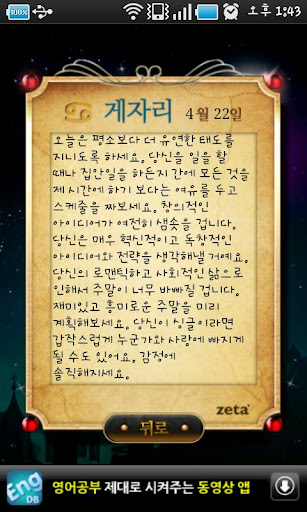 100%
오후 1:43
게자리 4월 22일
오늘은 평소보다 더 유연한 태도를
지니도록 하세요. 당신을 일을 할
때나 집안일을 하든지간에 모든 것을
제 시간에 하기 보다는 여유를 두고
스케줄을 짜보세요. 창의적인
아이디어가 여전히 샘솟을 겁니다.
당신은 매우 혁신적이고 독창적인
아이디어와 전략을 생각해낼 거예요.
당신의 로맨틱하고 사회적인 삶으로
인해서 주말이 너무 바빠질 겁니다.
재미있고 흥미로운 주말을 미리
계획해보세요. 당신이 싱글이라면
갑작스럽게 누군가와 사랑에 빠지게
될 수도 있어요. 감정에
솔직해지세요.
zeta
뒤로
Eng
DB
영어공부 제대로 시켜주는 동영상 앱